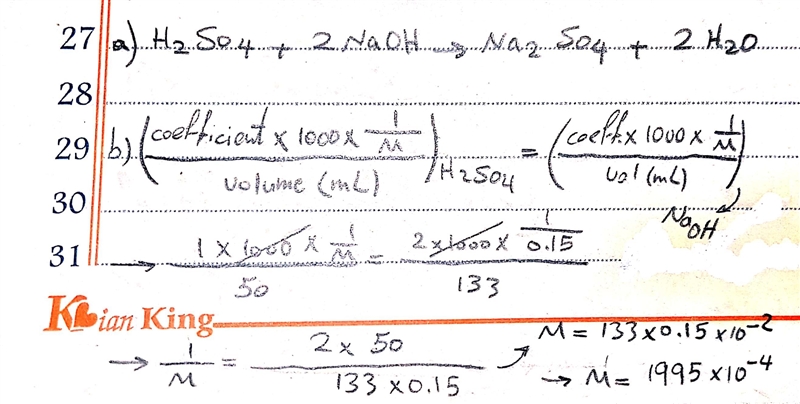 27 a) H2SO4 + 2NaOH → Na2SO4 + 2H2O
28
29 b) (coefficient x 1000 x 1/M / volume (mL)) H2SO4 = (coeff. x 1000 x 1/M / vol (mL)) NaOH
30
31 → 1 x 1000 x 1/M / 50 = 2 x 1000 x 1/0.15 / 133
Kian King
→ 1/M = 2 x 50 / 133 x 0.15 → M = 133 x 0.15 x 10-2
→ M = 1995 x 10-4